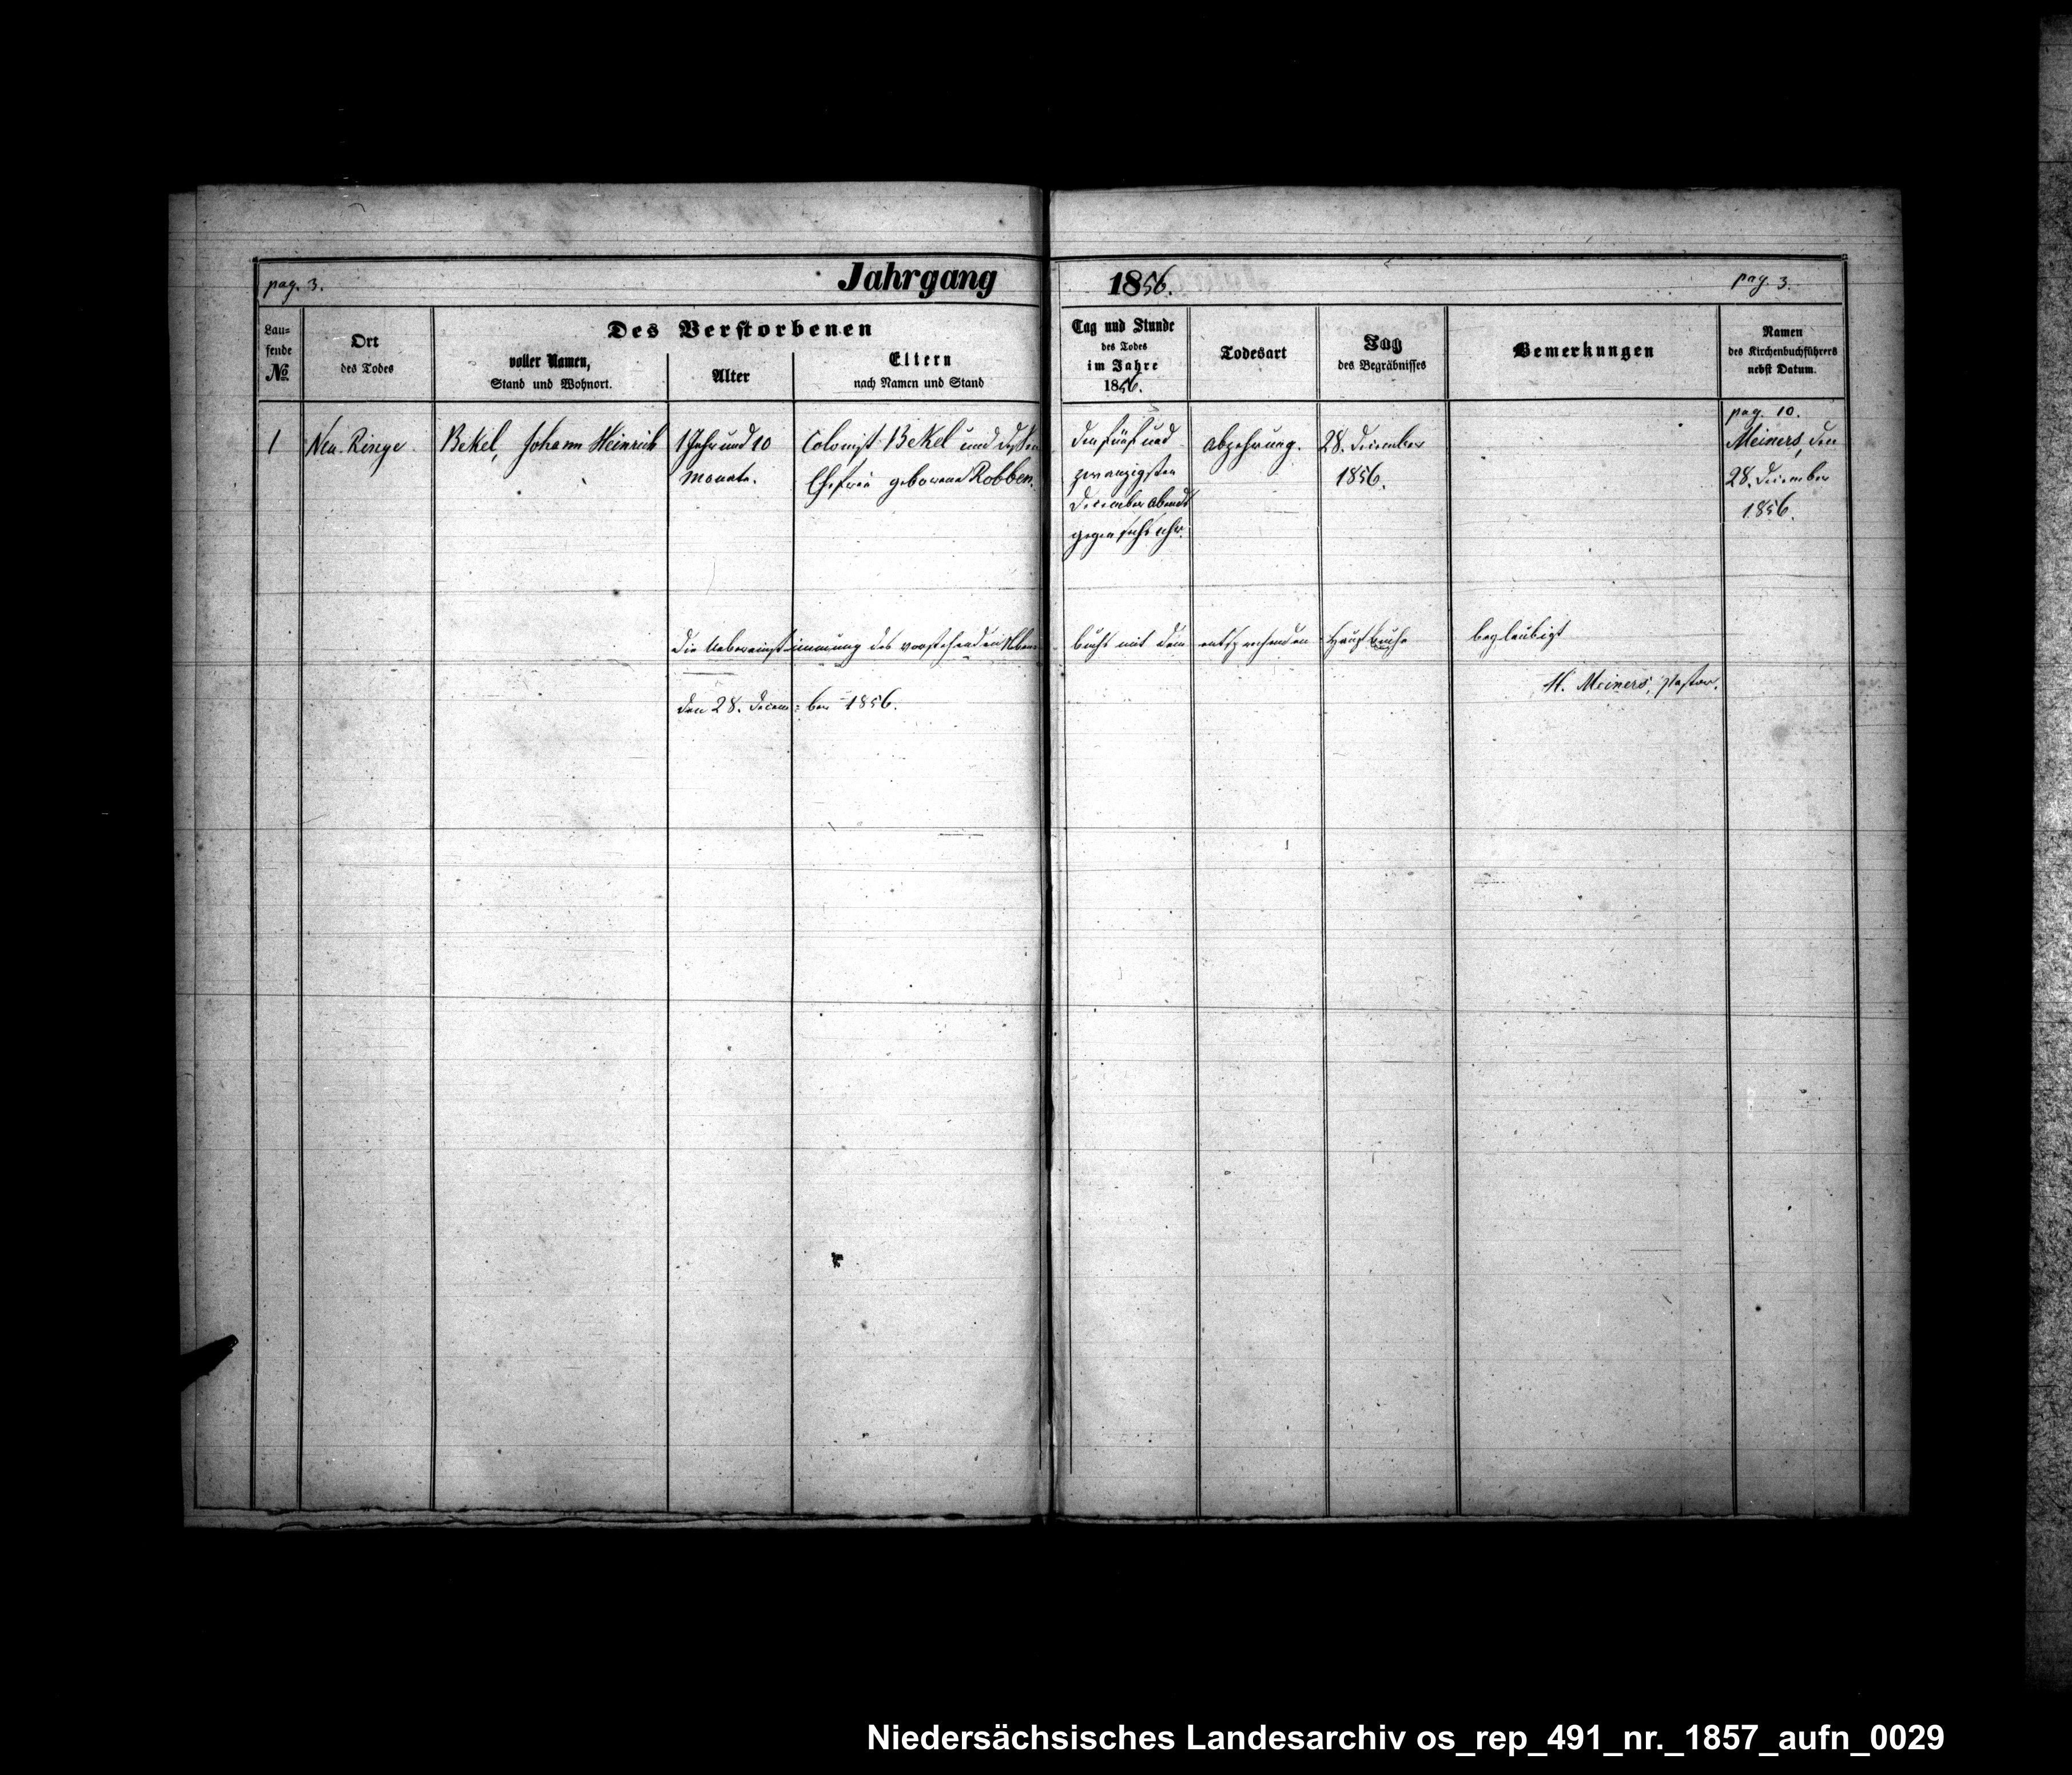 pag. 3.
Jahrgang 1856.
pag. 3.
Lau-
fende
No
Ort
des Todes
Des Verstorbenen
voller Namen,
Stand und Wohnort.
Alter
Eltern
nach Namen und Stand
Tag und Stunde
des Todes
im Jahre
1856.
Todesart
Tag
des Begräbnisses
Bemerkungen
Namen
des Kirchenbuchführers
nebst Datum.
1
Neu-Ringe.
Bekel, Johann Heinrich
1 Jahr und 10
Monate.
Colonist Bekel und dessen
Ehefrau geborene Robben.
den fünf und
zwanzigsten
December Abends
gegen sechs Uhr.
Abzehrung.
28. December
1856.
pag. 10.
Meiners, den
28. December
1856.
Die Uebereinstimmung des vorstehenden Neben-
buchs mit dem entsprechenden Hauptbuche beglaubigt
H. Meiners, Pastor.
den 28. Decem-ber 1856.
Niedersächsisches Landesarchiv os_rep_491_nr._1857_aufn_0029